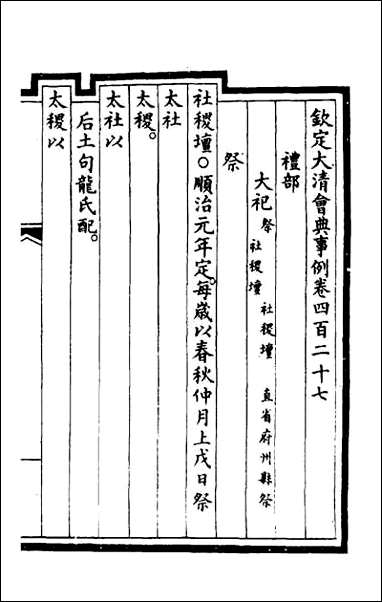 欽定大清會典事例卷四百二十七
禮部
大祀祭社稷壇 社稷壇 直省府州縣祭
祭
社稷壇○順治元年定每歲以春秋仲月上戊日祭
太社
太稷。
太社以
后土句龍氏配。
太稷以